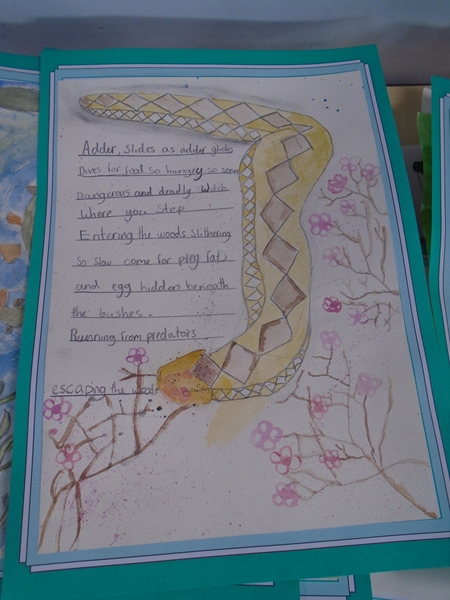 Adder, slides as adder glides
Dives for food so hungry so soon
Dangerous and deadly Watch
Where you step
Entering the woods slithering
So slow come for prey rats
and egg hidden beneath
the bushes.
Running from predators
escaping the woods